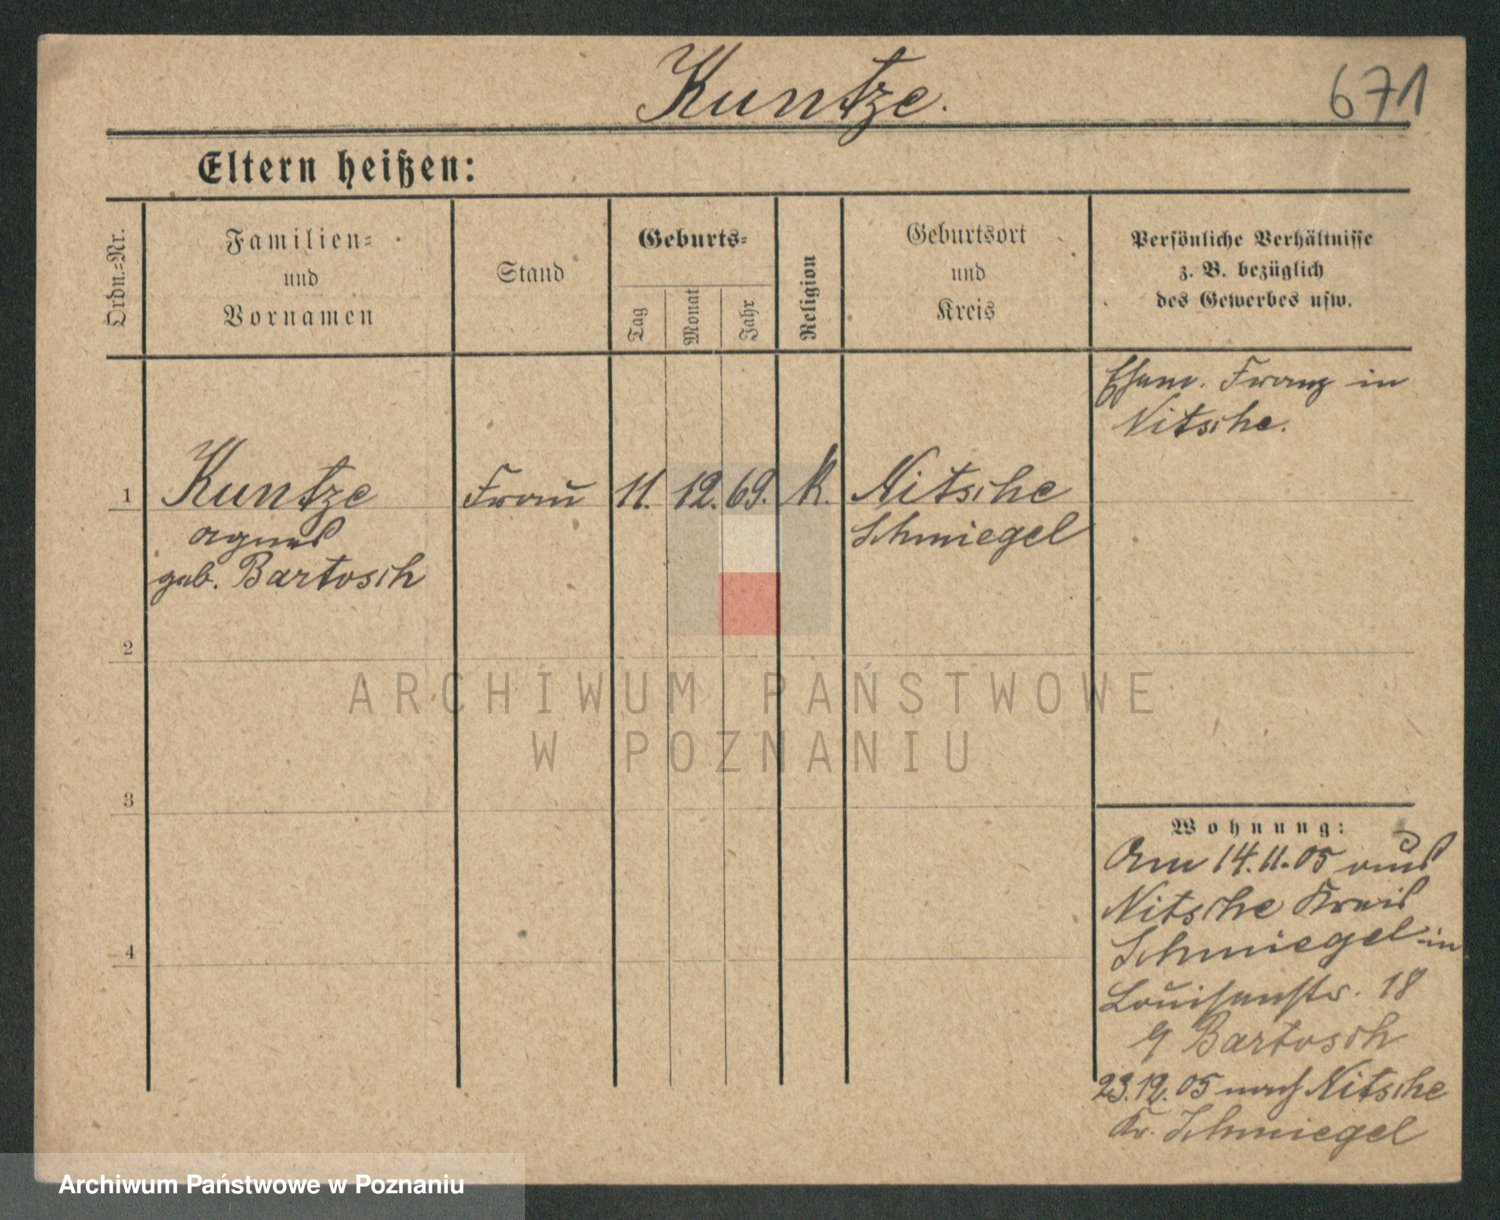 Kuntze.
671
Eltern heißen:
Ordn.=Nr.
Familien=
und
Vornamen
Stand
Geburts=
Tag
Monat
Jahr
Religion
Geburtsort
und
Kreis
Persönliche Verhältnisse
z. B. bezüglich
des Gewerbes usw.
Ehem. Franz in
Nitsche.
1 Kuntze Frau 11. 12. 69. K. Nitsche
Agnes Schmiegel
geb. Bartosch
2
3
4
Wohnung:
Am 14.11.05 aus
Nitsche Kreis
Schmiegel in
Louisenstr. 18
Bartosch
23.12.05 nach Nitsche
Kr. Schmiegel
ARCHIWUM PAŃSTWOWE
W POZNANIU
Archiwum Państwowe w Poznaniu